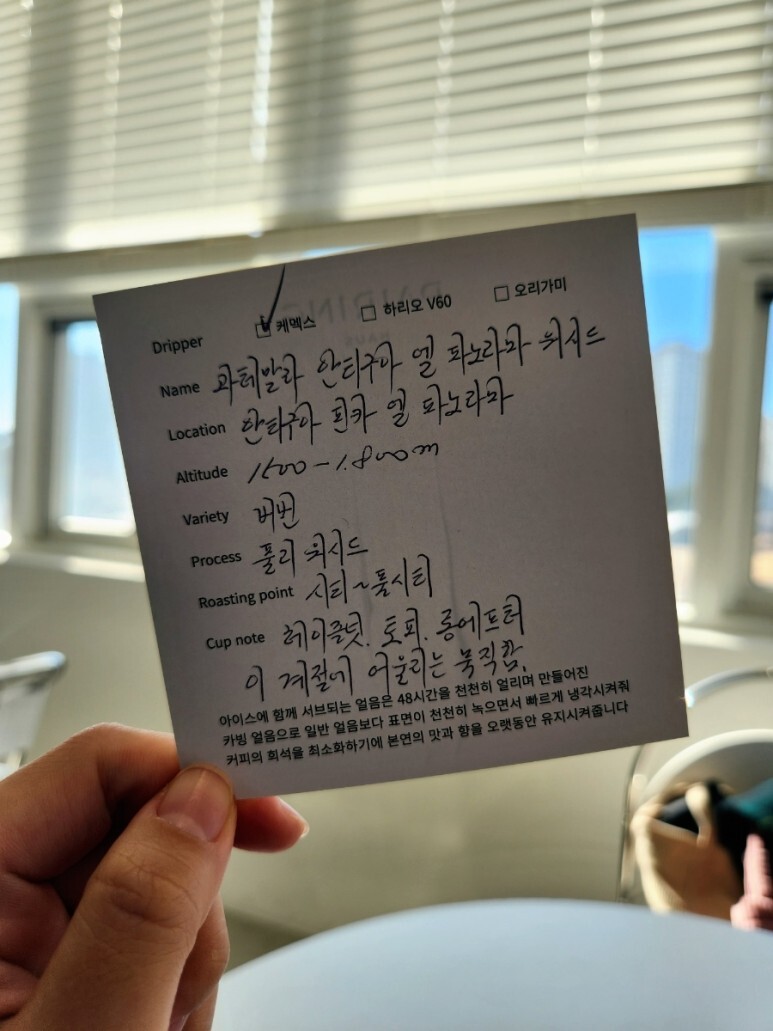 Dripper ☑ 케멕스 ☐ 하리오 V60 ☐ 오리가미
Name 과테말라 안티구아 엘 파노라마 워시드
Location 안티구아 핀카 엘 파노라마
Altitude 1500 - 1.800m
Variety 버번
Process 풀리 워시드
Roasting point 시티 ~ 풀시티
Cup note 헤이즐넛. 토피. 롱에프터
이 계절에 어울리는 묵직함.
아이스에 함께 서브되는 얼음은 48시간을 천천히 얼리며 만들어진
카빙 얼음으로 일반 얼음보다 표면이 천천히 녹으면서 빠르게 냉각시켜줘
커피의 희석을 최소화하기에 본연의 맛과 향을 오랫동안 유지시켜줍니다